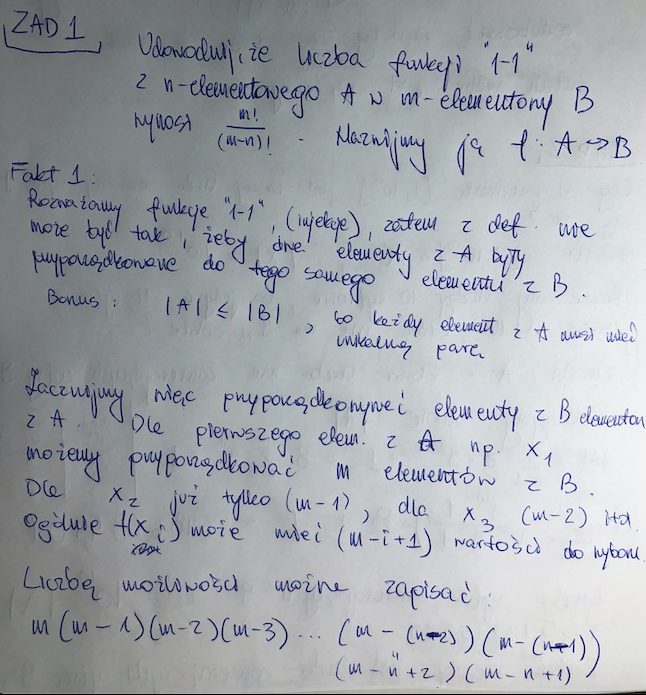 ZAD 1
Udowoduij, że liczba funkcji "1-1"
z n-elementowego A w m-elementowy B
wynosi m!/(m-n)! . Nazwijmy ją f: A → B
Fakt 1:
Rozważamy funkcje "1-1", (injekcje), zatem z def. nie
może być tak, żeby dwa elementy z A były
przyporządkowane do tego samego elementu z B.
Bonus: |A| ≤ |B|, bo każdy element z A musi mieć
unikalną parę
Zacznijmy więc przyporządkowywać elementy z B elementom
z A. Dla pierwszego elem. z A np. x₁
możemy przyporządkować m elementów z B.
Dla x₂ już tylko (m-1), dla x₃ (m-2) itd.
Ogólnie f(x_i) może mieć (m-i+1) wartości do wyboru.
Liczbę możliwości można zapisać:
m(m-1)(m-2)(m-3) ... (m-(n-2))(m-(n-1))
(m-n+2)(m-n+1)